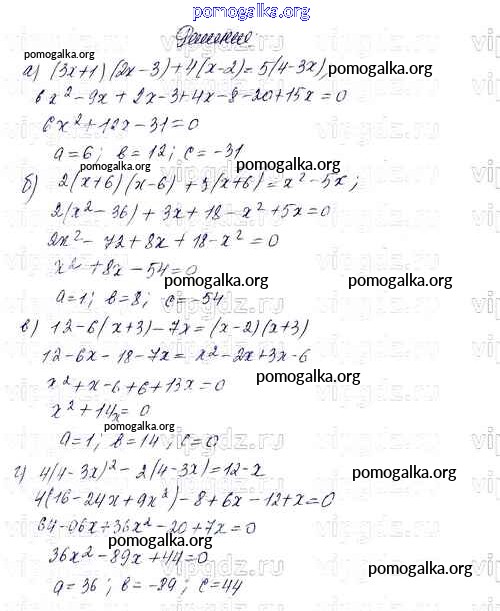 pomogalka.org
Решение:
pomogalka.org
а) (3x+1)(2x-3)+4(x-2)=5(4-3x) pomogalka.org
6x²-9x+2x-3+4x-8-20+15x=0
6x²+12x-31=0
a=6; b=12; c=-31
pomogalka.org pomogalka.org
б) 2(x+6)(x-6)+3(x+6)=x²-5x;
2(x²-36)+3x+18-x²+5x=0
2x²-72+8x+18-x²=0
x²+8x-54=0
pomogalka.org
a=1; b=8; c=-54
в) 12-6(x+3)-7x=(x-2)(x+3)
12-6x-18-7x=x²-2x+3x-6
x²+x-6+6+13x=0
pomogalka.org
x²+14x=0
pomogalka.org
a=1, b=14, c=0
г) 4(4-3x)²-2(4-3x)=12-x pomogalka.org
4(16-24x+9x²)-8+6x-12+x=0
64-96x+36x²-20+7x=0
pomogalka.org
36x²-89x+44=0
pomogalka.org
a=36; b=-89; c=44